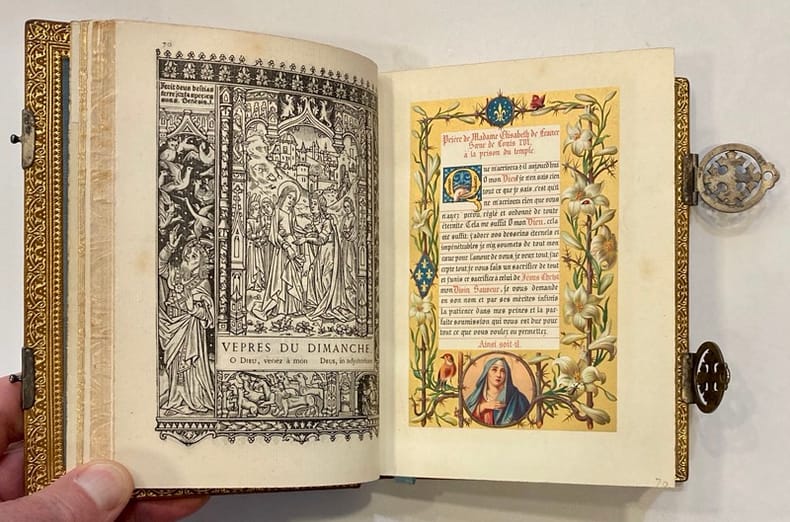 70
Fecit deus bestias
terre juxta species
suas. Genesis. I.
VEPRES DU DIMANCHE
O DIEU, venez à mon
DEUS, in adjutorium
Prière de Madame Elisabeth de France
Sœur de Louis XVI,
à la prison du temple.
Que m'arrivera t-il aujourd'hui
O mon Dieu! je n'en sais rien
tout ce que je sais, c'est qu'il
ne m'arrivera rien que vous
n'ayez prévu, réglé et ordonné de toute
éternité. Cela me suffit O mon Dieu, cela
me suffit; j'adore vos desseins éternels et
impénétrables je m'y soumets de tout mon
cœur pour l'amour de vous, je veux tout, j'ac
cepte tout, je vous fais un sacrifice de tout
et j'unis ce sacrifice à celui de Jésus Christ
mon Divin Sauveur, je vous demande
en son nom et par ses mérites infinis
la patience dans mes peines et la par-
faite soumission qui vous est due pour
tout ce que vous voulez ou permettez.
Ainsi soit-il.
70